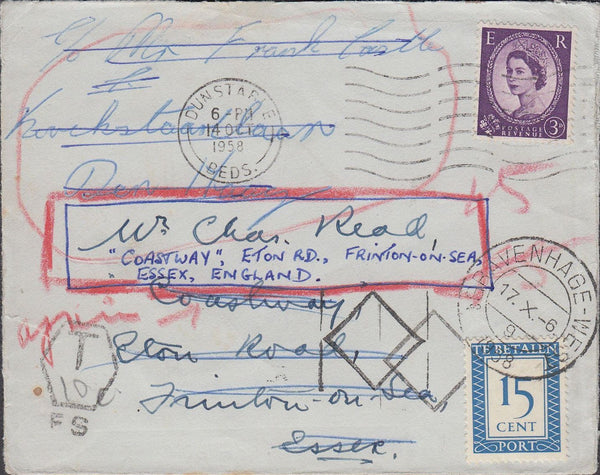 c/o Mr Frank Castle
DUNSTABLE
6 - PM
14 OCT
1958
BEDS.
E R
3D
POSTAGE
REVENUE
Den
Mr. Chas. Read,
"COASTWAY", ETON RD., FRINTON-ON-SEA,
ESSEX, ENGLAND.
Coastway,
Eton Road,
Frinton-on-Sea,
Essex.
again
45
T
10
FS
GRAVENHAGE-WES
17.X.-6
9
1958
TE BETALEN
15
CENT
PORT